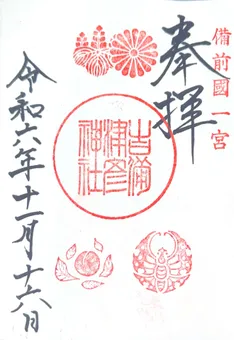 備前國一宮
奉拝
吉備
津彦
神社
令和六年十一月十六日